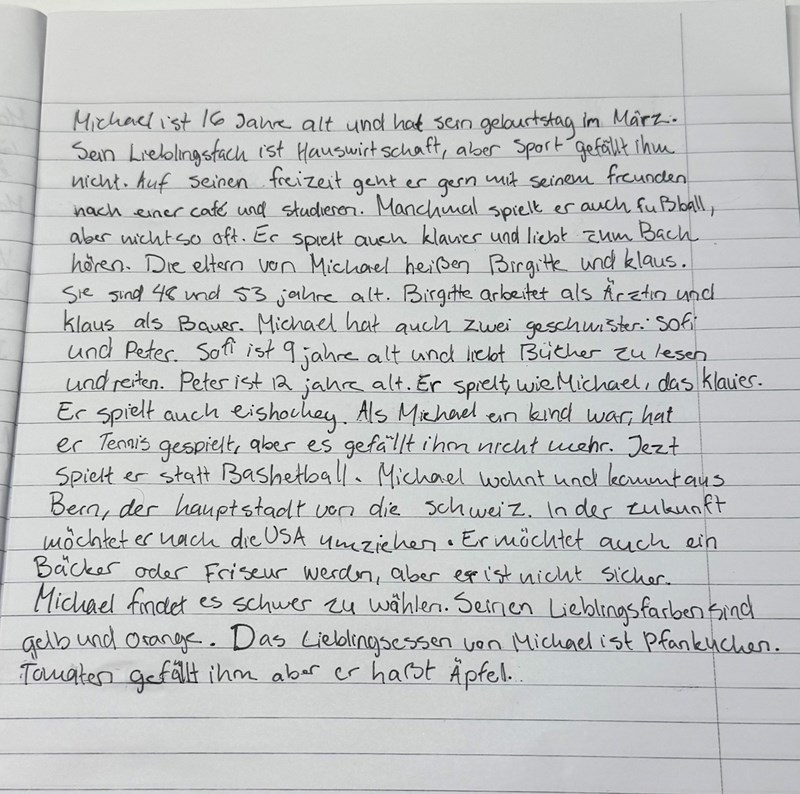 Michael ist 16 Jahre alt und hat sein geburtstag im März.
Sein Lieblingsfach ist Hauswirtschaft, aber Sport gefällt ihm
nicht. Auf seinen freizeit geht er gern mit seinem freunden
nach einer café und studieren. Manchmal spielt er auch fußball,
aber nicht so oft. Er spielt auch klavier und liebt zum Bach
hören. Die eltern von Michael heißen Birgitte und klaus.
Sie sind 48 und 53 jahre alt. Birgitte arbeitet als Ärztin und
klaus als Bauer. Michael hat auch zwei geschwister: Sofi
und Peter. Sofi ist 9 jahre alt und liebt Bücher zu lesen
und reiten. Peter ist 12 jahre alt. Er spielt, wie Michael, das klavier.
Er spielt auch eishockey. Als Michael ein kind war, hat
er Tennis gespielt, aber es gefällt ihm nicht mehr. Jezt
spielt er statt Basketball. Michael wohnt und kommt aus
Bern, der hauptstadt von die schweiz. In der zukunft
möchtet er nach die USA umziehen. Er möchtet auch ein
Bäcker oder Friseur werden, aber er ist nicht sicher.
Michael findet es schwer zu wählen. Seinen Lieblingsfarben sind
gelb und orange. Das Lieblingsessen von Michael ist Pfankuchen.
Tomaten gefällt ihm aber er haßt Äpfel.